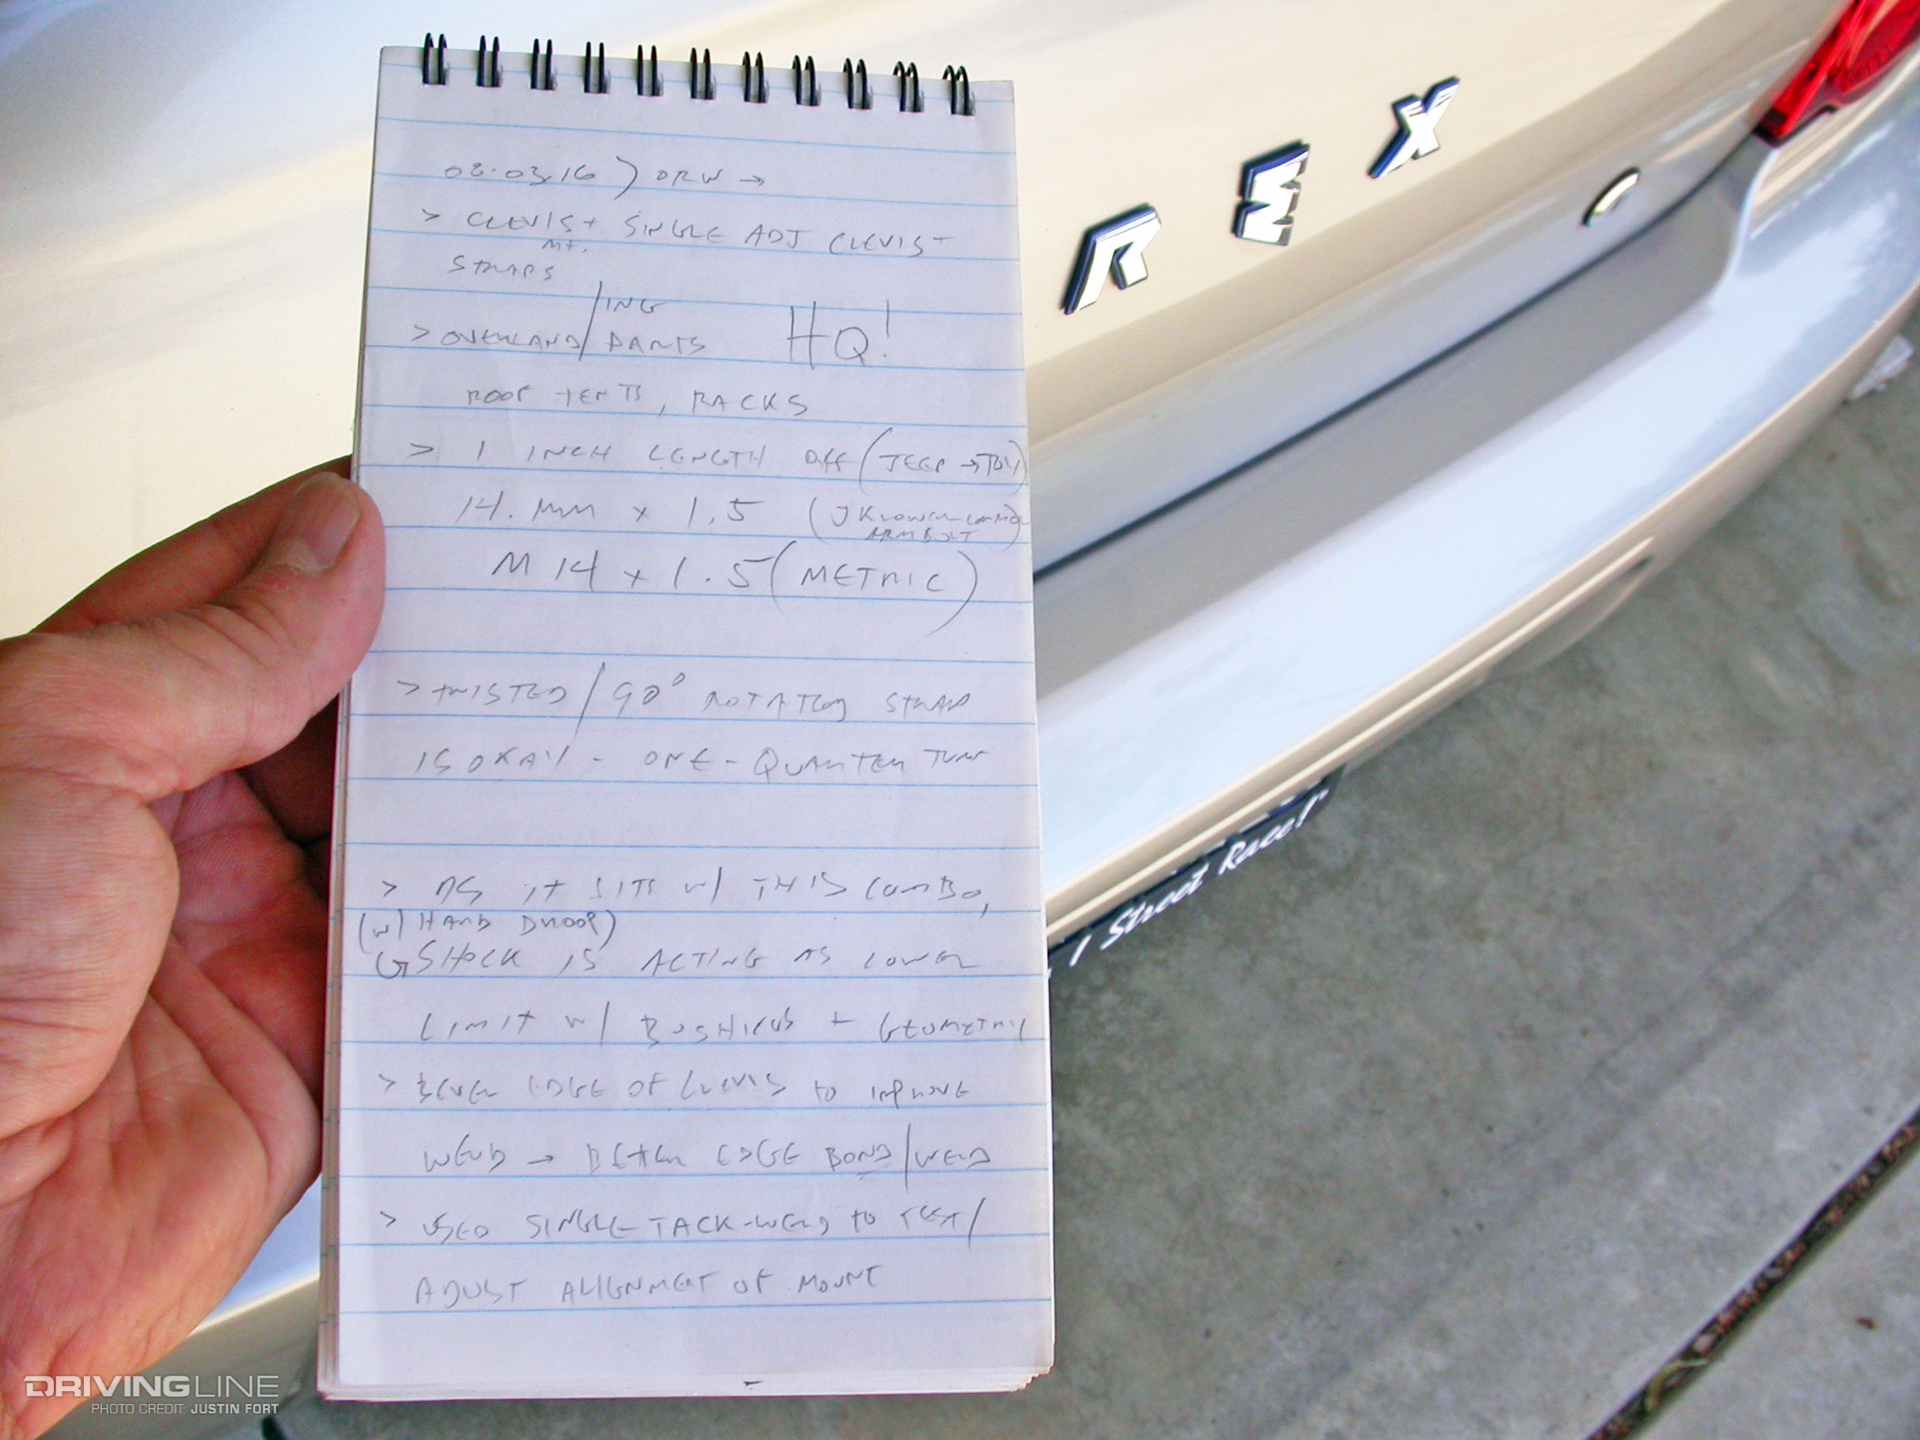 08.03.16 ) ORW →
> CLEVIS + SINGLE ADJ CLEVIS +
MT.
STRAPS
/ING
> OVERLAND/PARTS HQ!
ROOF TENTS, RACKS
> 1 INCH LENGTH OFF (JEEP → TOY)
14.MM x 1.5 (JK LOWER CONTROL
ARM BOLT)
M14 x 1.5 (METRIC)
> TWISTED/90° ROTATED STRAP
IS OKAY - ONE-QUARTER TURN
> AS IT SITS W/ THIS COMBO,
(W/ HARD DROOP)
SHOCK IS ACTING AS LOWER
LIMIT W/ BUSHINGS + GEOMETRIC
> BEVEL EDGE OF CLEVIS TO IMPROVE
WELD → BETTER EDGE BOND/WELD
> USED SINGLE TACK-WELD TO TEST/
ADJUST ALIGNMENT OF MOUNT
REX
I Street Race!
DRIVINGLINE
PHOTO CREDIT: JUSTIN FORT